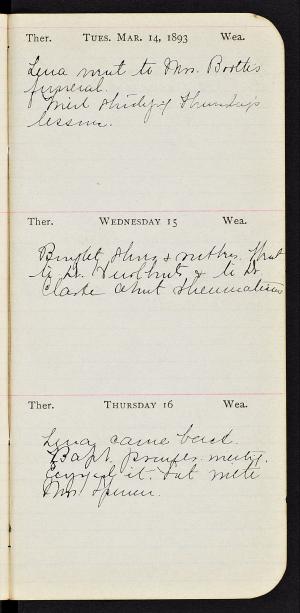 Ther. TUES. MAR. 14, 1893 Wea.
Lena went to Mrs. Booth's
funeral.
Tried studying Thursday's
lesson.
Ther. WEDNESDAY 15 Wea.
Bought & Went
to Dr. & to Dr.
Clarke about rheumatism
Ther. THURSDAY 16 Wea.
Lena came back.
Bapt. prayer meeting.
Enjoyed it. Sat with
Mrs. Spencer.